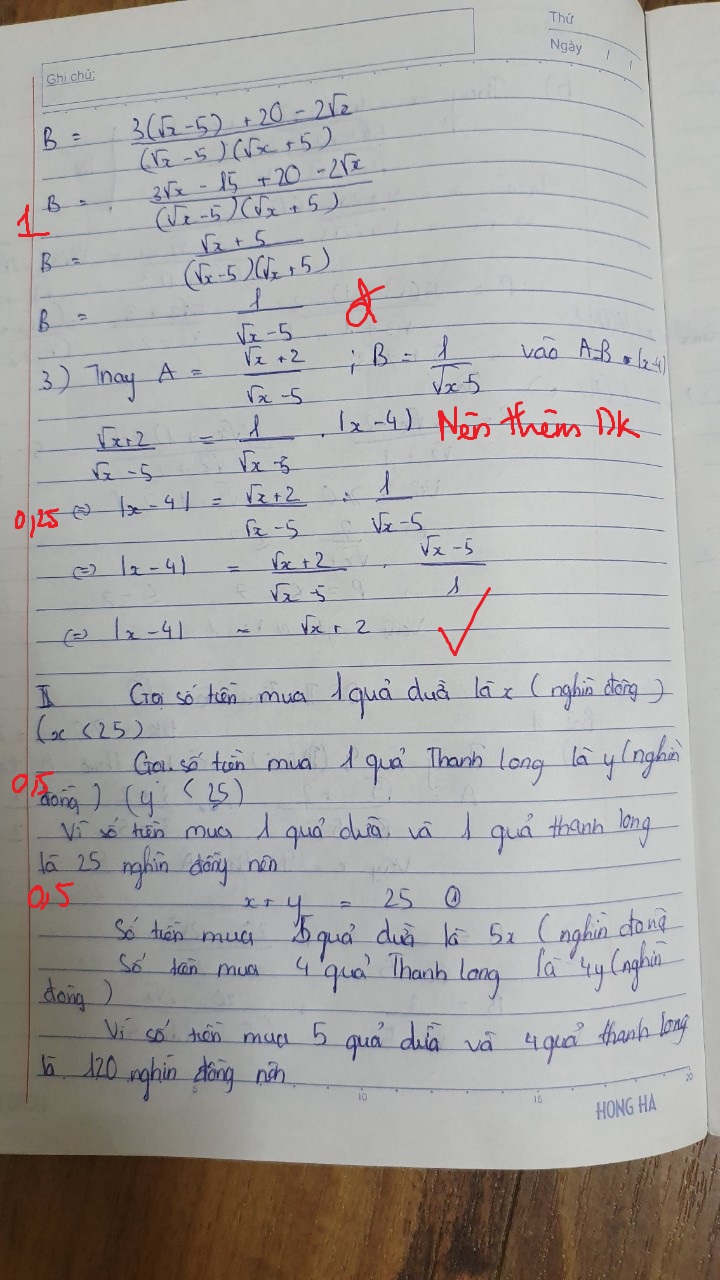 Thứ
Ngày / /
Ghi chú:
B = 3(√x-5) + 20 - 2√x / (√x-5)(√x+5)
B = 3√x - 15 + 20 - 2√x / (√x-5)(√x+5)
1
B = √x + 5 / (√x-5)(√x+5)
B = 1 / √x-5
3) Thay A = √x+2 / √x-5 ; B = 1 / √x-5 vào A=B.|x-4|
√x+2 / √x-5 = 1 / √x-5 . |x-4| Nên thêm ĐK
0,25 ⇔ |x-4| = √x+2 / √x-5 : 1 / √x-5
⇔ |x-4| = √x+2 / √x-5 . √x-5 / 1
⇔ |x-4| = √x+2 ✓
II Gọi số tiền mua 1 quả dừa là x (nghìn đồng)
(x < 25)
Gọi số tiền mua 1 quả Thanh long là y (nghìn
0,5 đồng) (y < 25)
Vì số tiền mua 1 quả dừa và 1 quả thanh long
là 25 nghìn đồng nên
0,5 x + y = 25 ①
Số tiền mua 5 quả dừa là 5x (nghìn đồng
Số tiền mua 4 quả Thanh long là 4y (nghìn
đồng)
Vì số tiền mua 5 quả dừa và 4 quả thanh long
là 120 nghìn đồng nên
5 10 15 20
HONG HA